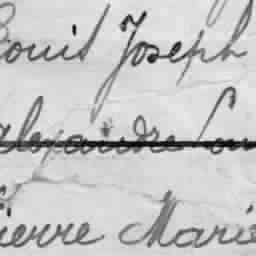 Louis Joseph
Alexandre Lou
Pierre Marie